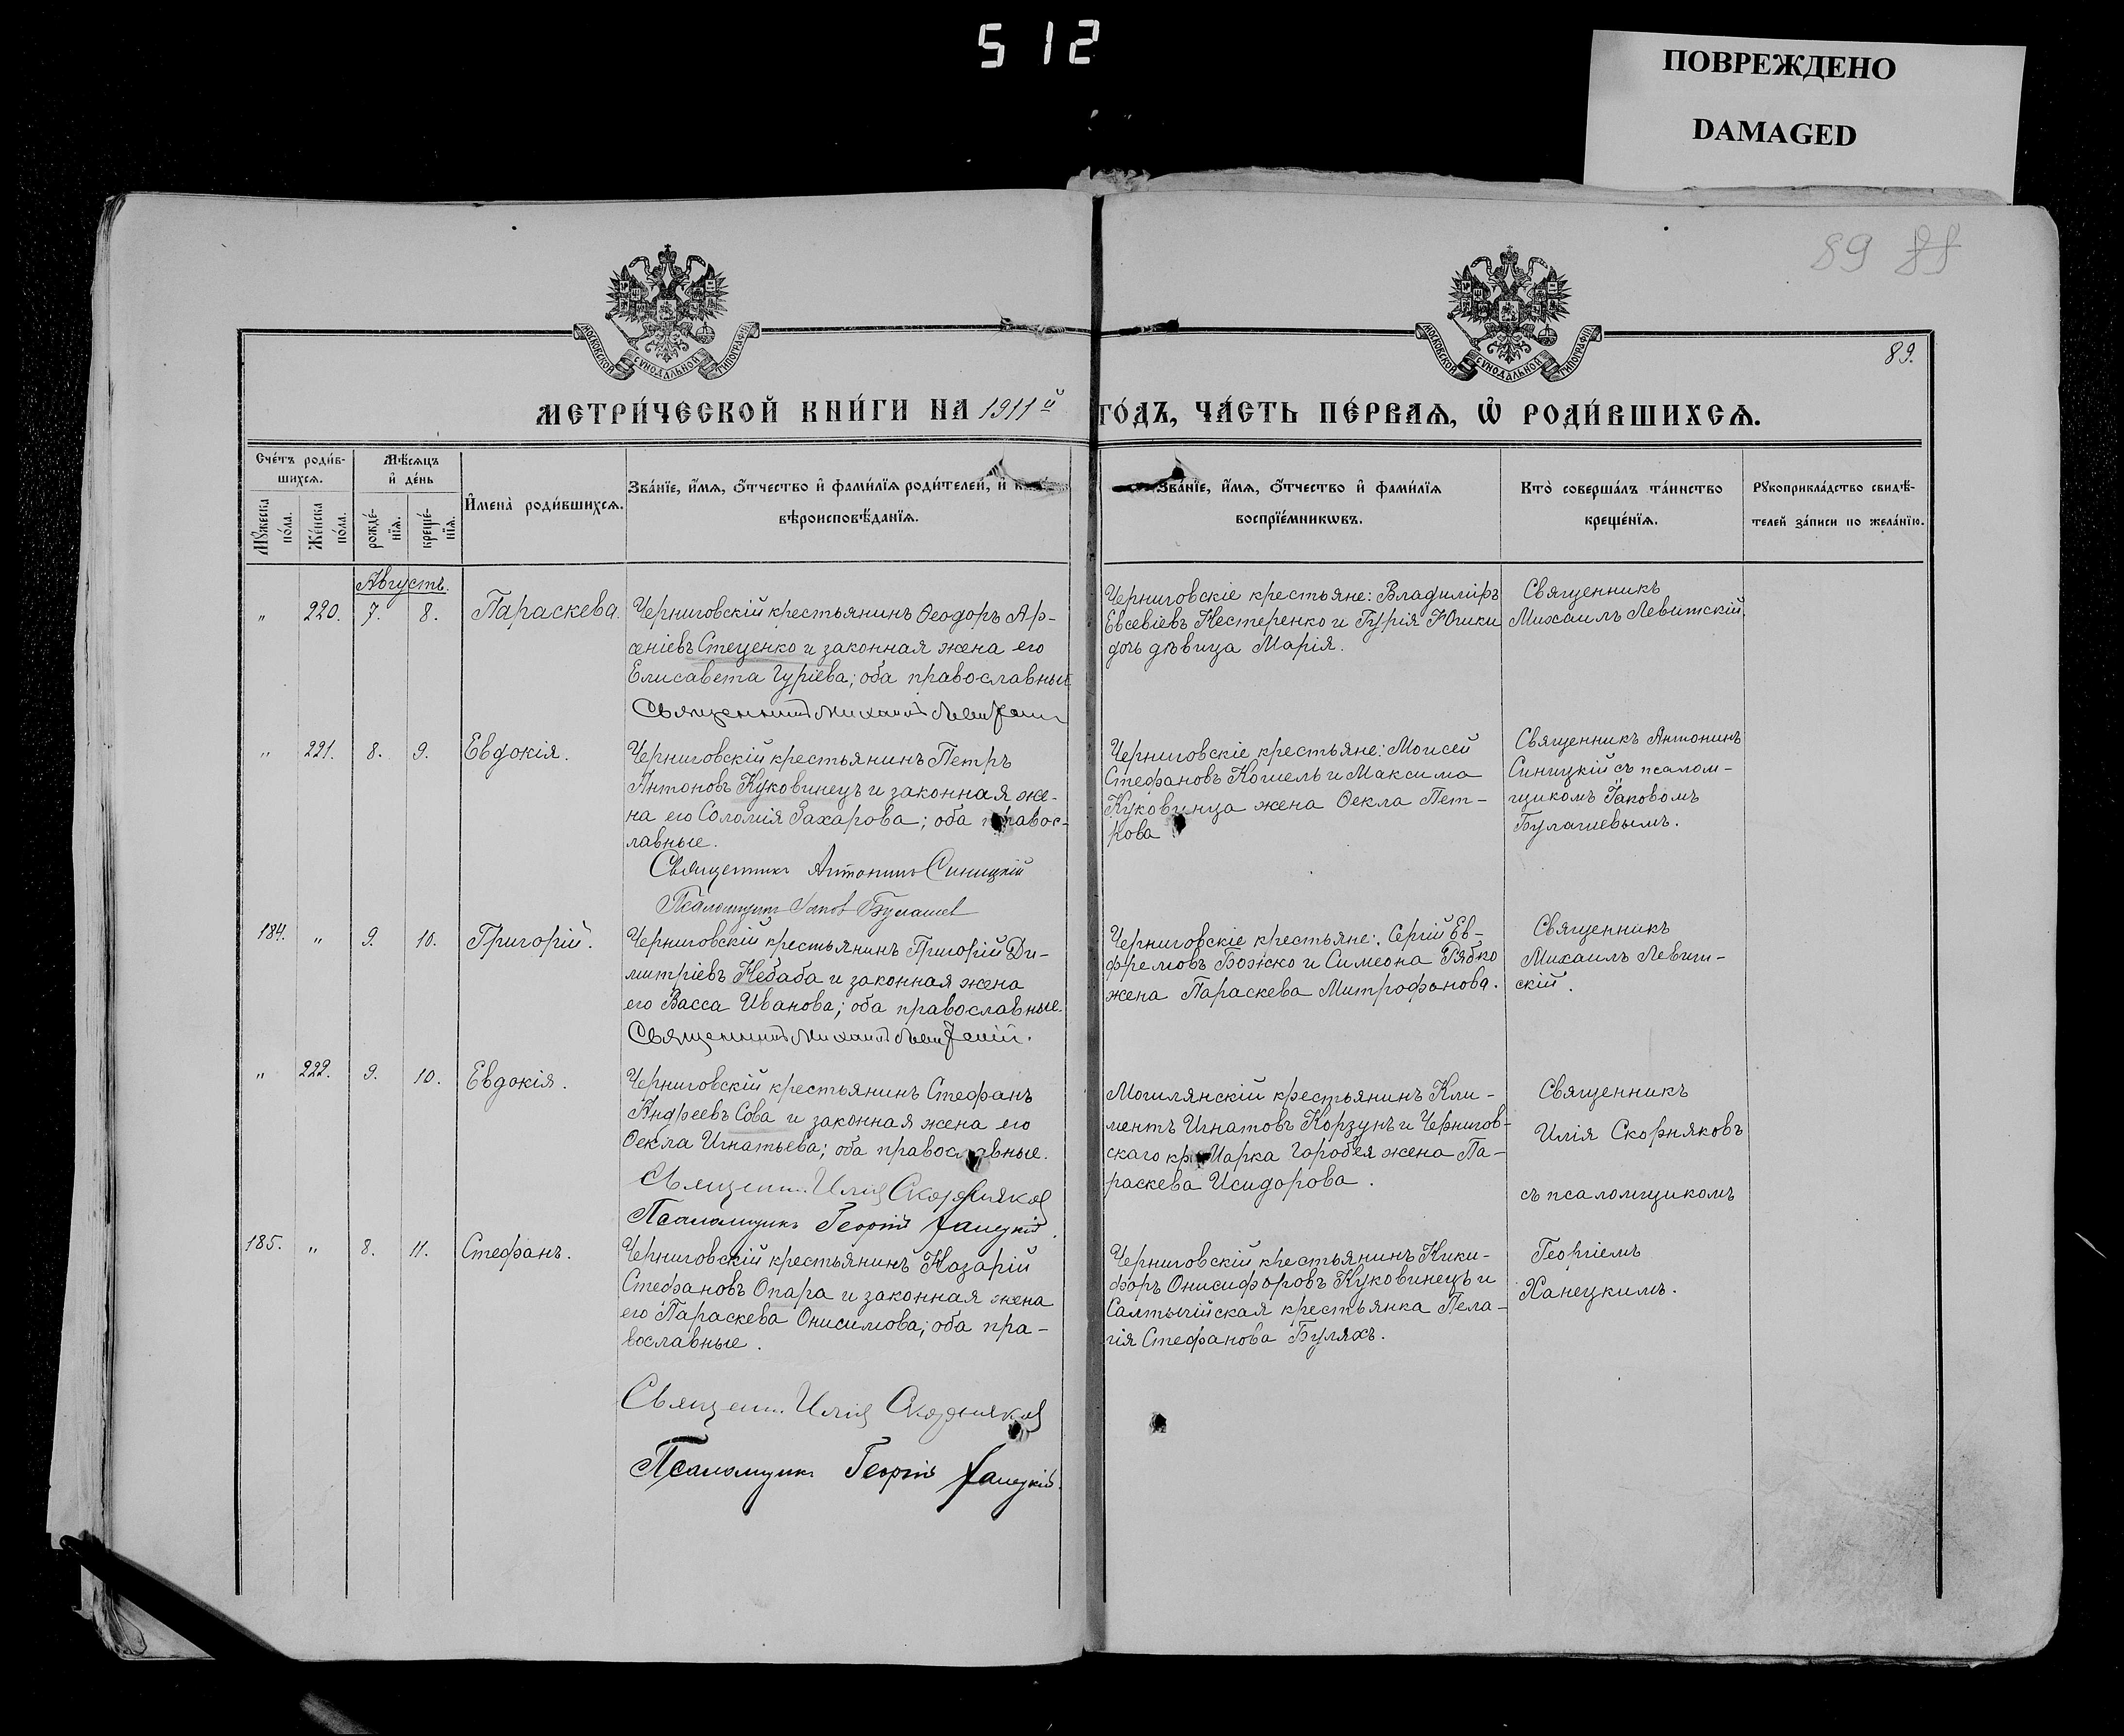 512
ПОВРЕЖДЕНО
DAMAGED
89 88
МОСКОВСКОЙ СѴНОДАЛЬНОЙ ТИПОГРАФІИ
МОСКОВСКОЙ СѴНОДАЛЬНОЙ ТИПОГРАФІИ
89.
МЕТРИ́ЧЕСКОЙ КНИ́ГИ НА 1911й ГО́ДЪ, ЧА́СТЬ ПЕ́РВАѦ, Ѡ҆ РОДИ́ВШИХСѦ.
Сче́тъ роди́в-
шихсѧ.
Мꙋ́жеска по́ла.
Же́нска по́ла.
Мѣ́сѧцъ
и҆ де́нь
рожде́-
нїѧ.
креще́-
нїѧ.
И҆мена̀ роди́вшихсѧ.
Зва́нїе, и҆́мѧ, ѻ҆́тчество и҆ фами́лїѧ роди́телей, и҆
вѣроисповѣ́данїѧ.
Зва́нїе, и҆́мѧ, ѻ҆́тчество и҆ фами́лїѧ
воспрїе́мникѡвъ.
Кто̀ соверша́лъ та́инство
креще́нїѧ.
Рꙋкоприкла́дство свидѣ́-
телей за́писи по жела́нїю.
Августъ.
„ 220. 7. 8. Параскева.
Черниговскій крестьянинъ Ѳеодоръ Ар-
сеніевъ Стеценко и законная жена его
Елисавета Гуріева; оба православные
Священникъ Михаилъ Левитскій
Черниговскіе крестьяне: Владиміръ
Евсевіевъ Нестеренко и Гурія Юшки
дочь дѣвица Марія.
Священникъ
Михаилъ Левитскій.
„ 221. 8. 9. Евдокія.
Черниговскій крестьянинъ Петръ
Антоновъ Куковинецъ и законная же-
на его Соломія Захарова; оба правос-
лавные.
Священникъ Антонинъ Синицкій
Псаломщикъ Іаковъ Булашев
Черниговскіе крестьяне: Моисей
Стефановъ Кошель и Максима
Куковинца жена Ѳекла Пет-
кова
Священникъ Антонинъ
Синицкій съ псалом-
щикомъ Іаковомъ
Булашевымъ.
184. „ 9. 10. Григорій.
Черниговскій крестьянинъ Григорій Ди-
митріевъ Небаба и законная жена
его Васса Иванова; оба православные.
Священникъ Михаилъ Левитскій.
Черниговскіе крестьяне: Сергій Ев-
фремовъ Божко и Симеона Рябко
жена Параскева Митрофанова.
Священникъ
Михаилъ Левит-
скій.
„ 222. 9. 10. Евдокія.
Черниговскій крестьянинъ Стефанъ
Андреевъ Сова и законная жена его
Ѳекла Игнатьева; оба православные.
Священ. Илія Скорняков
Псаломщикъ Георгій Ханецкій.
Могилянскій крестьянинъ Кли-
ментъ Игнатовъ Корзунъ и Чернигов-
скаго кр. Марка Горобея жена Па-
раскева Исидорова.
Священникъ
Илія Скорняковъ
съ псаломщикомъ
185. „ 8. 11. Стефанъ.
Черниговскій крестьянинъ Назарій
Стефановъ Опара и законная жена
его Параскева Онисимова; оба пра-
вославные.
Черниговскій крестьянинъ Ники-
форъ Онисифоровъ Куковинецъ и
Салтычійская крестьянка Пела-
гія Стефанова Буляхъ.
Георгіемъ
Ханецкимъ.
Священ. Илія Скорняков
Псаломщикъ Георгій Ханецкій.